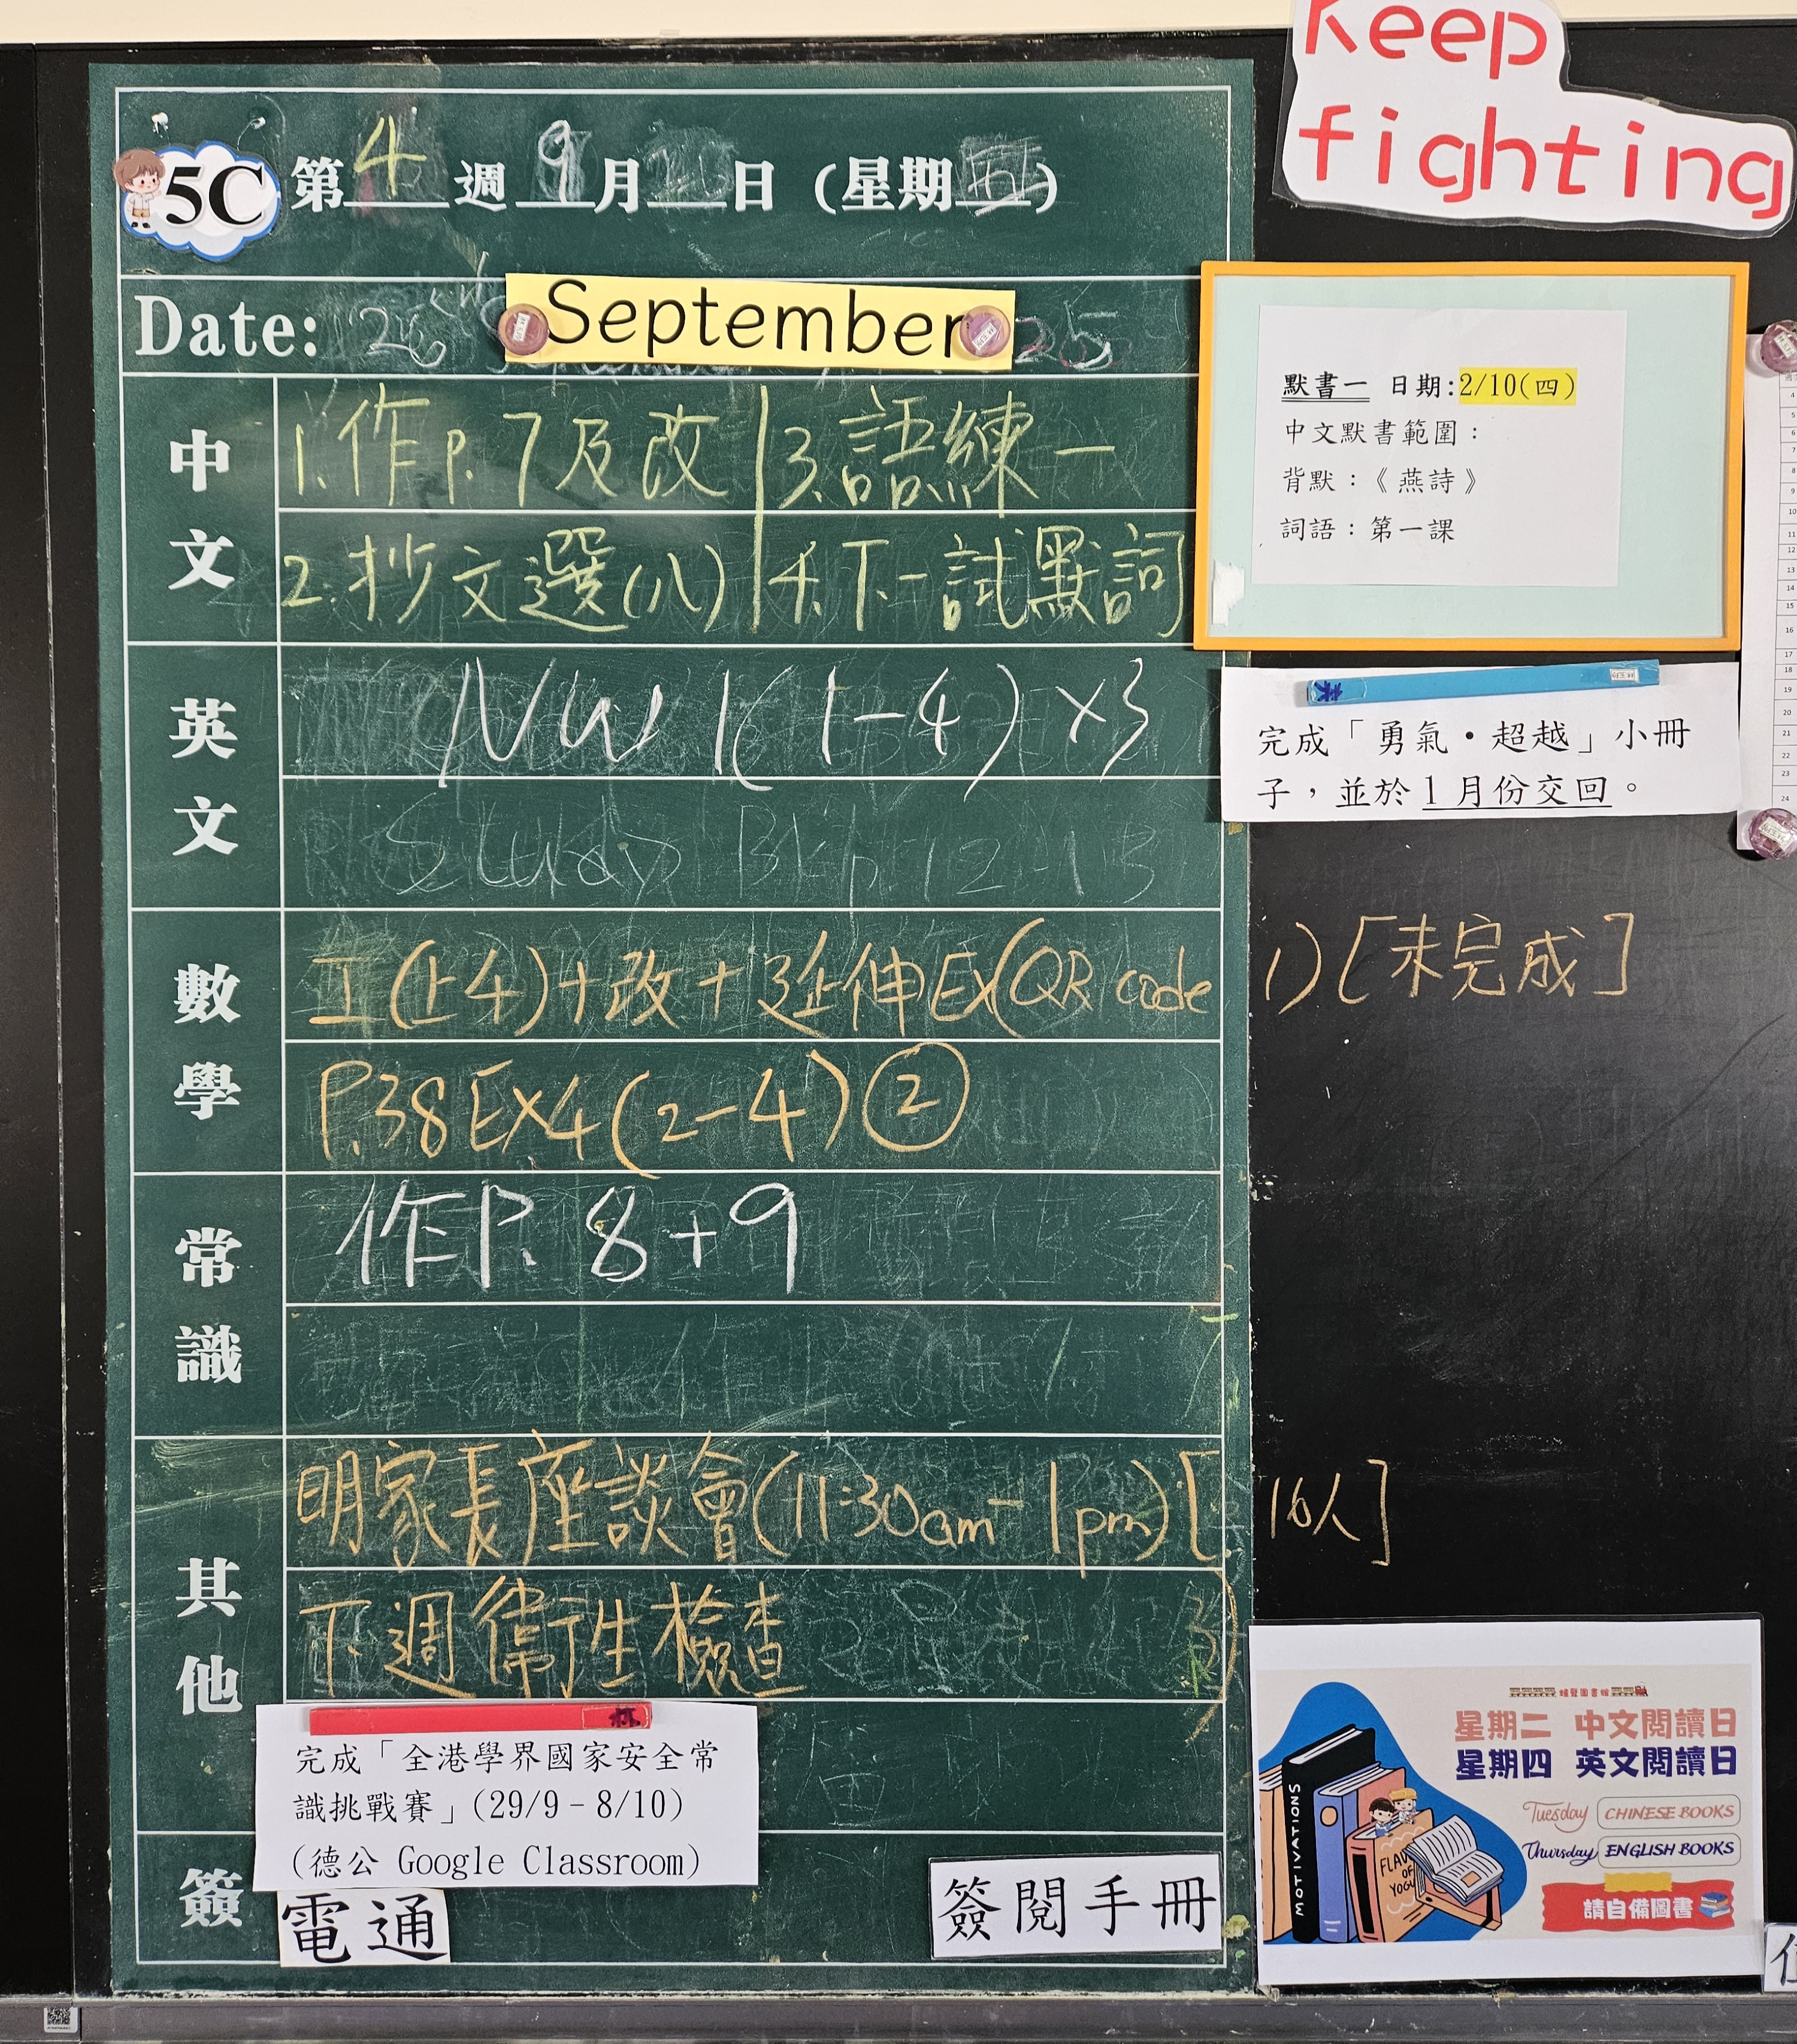 Keep
fighting
5C 第4週 9月 日 (星期五)
Date: 26 September 25
中文
1.作P.7及改 3.語練一
2.抄文選(八) 4.下一試默詞
英文
NW 1(1-4) x3
數學
工(上4)+改+延伸Ex(QR code 1)[未完成]
P.38 Ex4(2-4)②
常識
作P.8+9
其他
明家長座談會(11:30am-1pm)[16人]
下週衞生檢查
完成「全港學界國家安全常
識挑戰賽」(29/9-8/10)
(德公 Google Classroom)
簽
電通
簽閱手冊
默書一 日期:2/10(四)
中文默書範圍：
背默：《燕詩》
詞語：第一課
完成「勇氣・超越」小冊
子，並於1月份交回。
星期二 中文閱讀日
星期四 英文閱讀日
Tuesday CHINESE BOOKS
Thursday ENGLISH BOOKS
請自備圖書
MOTIVATIONS